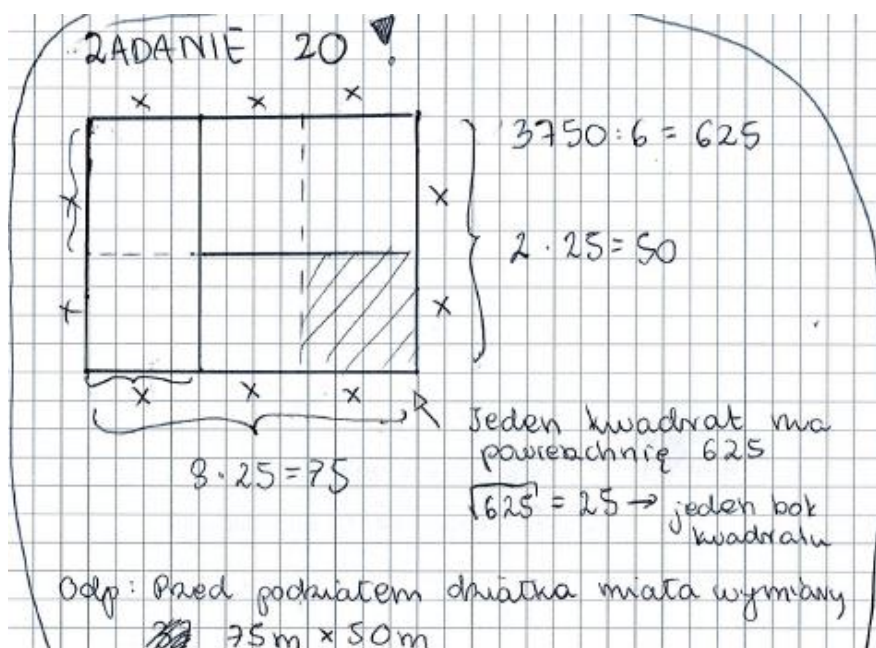 ZADANIE 20 !
x x x
3750 : 6 = 625
x x
2 · 25 = 50
x x
x x x
Jeden kwadrat ma
powierzchnię 625
3 · 25 = 75
√625 = 25 → jeden bok
kwadratu
Odp: Przed podziałem działka miała wymiary
75m × 50m